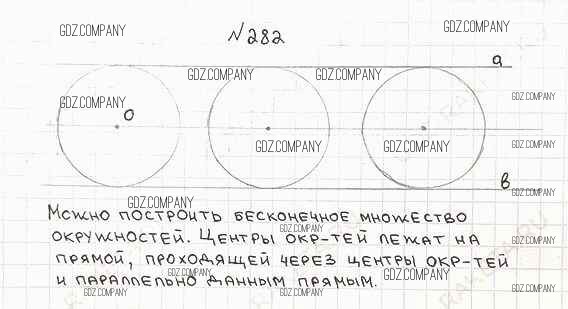 №282
GDZ.COMPANY
GDZ.COMPANY
a
GDZ.COMPANY
GDZ.COMPANY
GDZ.COMPANY
GDZ.COMPANY
O
GDZ.COMPANY
GDZ.COMPANY
GDZ.COMPANY
в
GDZ.COMPANY
GDZ.COMPANY
Можно построить бесконечное множество
GDZ.COMPANY
окружностей. Центры окр-тей лежат на
GDZ.COMPANY
прямой, проходящей через центры окр-тей
GDZ.COMPANY
GDZ.COMPANY
и параллельно данным прямым.
GDZ.COMPANY
GDZ.COMPANY
GDZ.COMPANY